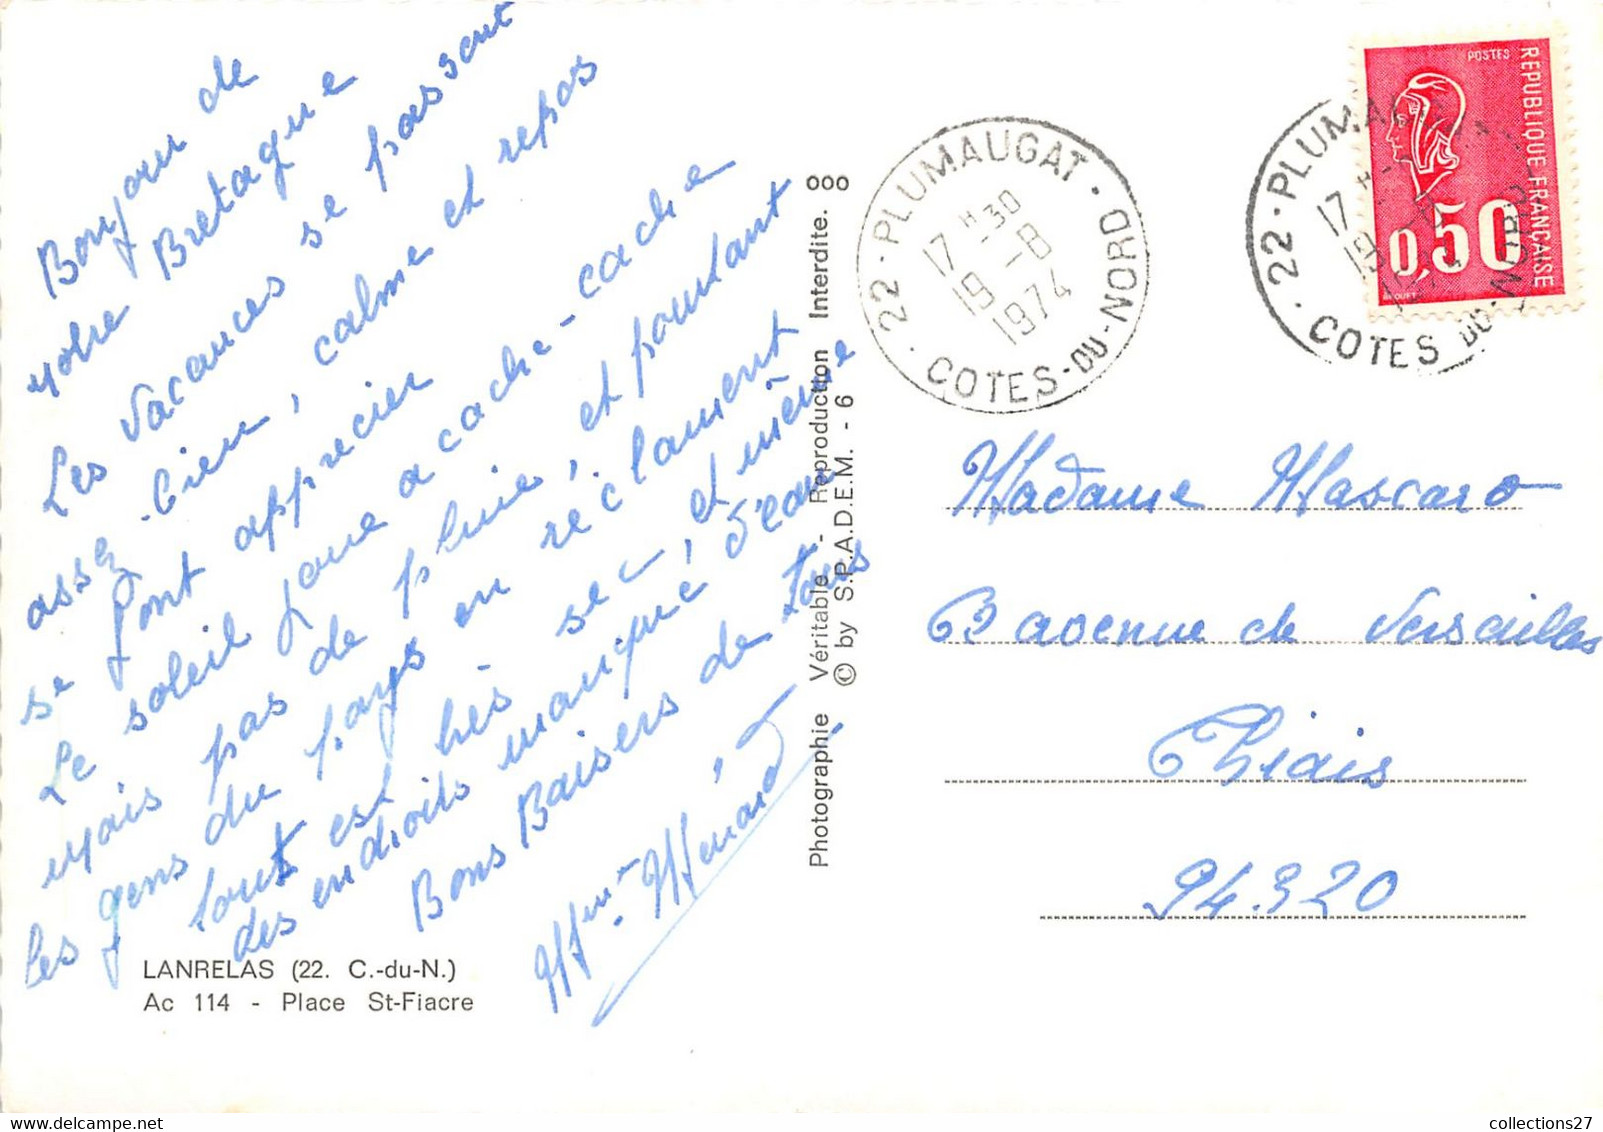 Bonjour de
notre Bretagne
Les vacances se passent
assez bien, calme et repos
se font apprecier
Le soleil joue a cache-cache
mais pas de pluie, et pourtant
les gens du pays en réclament
tout est très sec, et même
des endroits manque d'eau
Bons Baisers de tous
Mme Ménard
LANRELAS (22. C.-du-N.)
Ac 114 - Place St-Fiacre
Photographie Véritable - Reproduction Interdite. 000
© by S.P.A.D.E.M. - 6
22 - PLUMAUGAT · COTES-DU-NORD ·
17 H 30
19 -8
1974
22 - PLUMA
17 H
19
COTES DU-NORD
POSTES
REPUBLIQUE FRANÇAISE
0,50
Madame Mascaro
avenue de Versailles
Thiais
94320
collections27